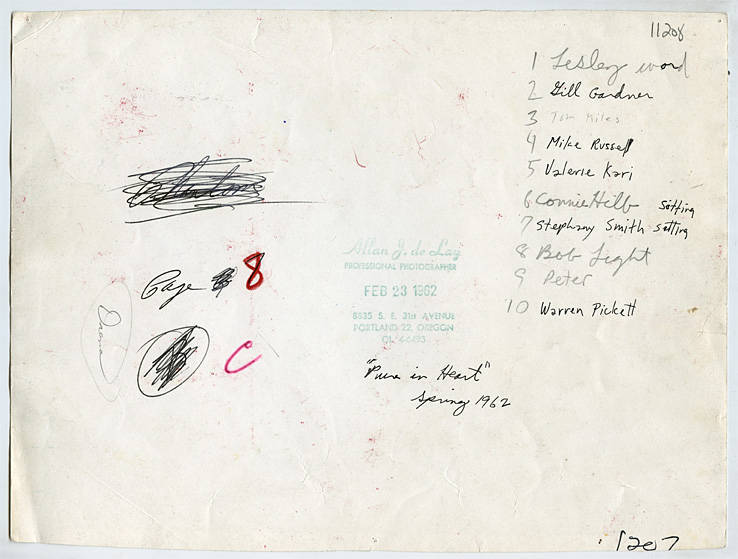 11208
1 Lesley word
2 Gill Gardner
3 Tom Miles
4 Mike Russell
5 Valerie Kari
6 Connie Hilb Sitting
7 Stephany Smith Sitting
8 Bob Light
9 Peter
10 Warren Pickett
Page 8
C
Drama
Allan J. de Lay
PROFESSIONAL PHOTOGRAPHER
FEB 23 1962
8835 S. E. 31st AVENUE
PORTLAND 22, OREGON
OL 4-6493
"Pure in Heart"
Spring 1962
1207